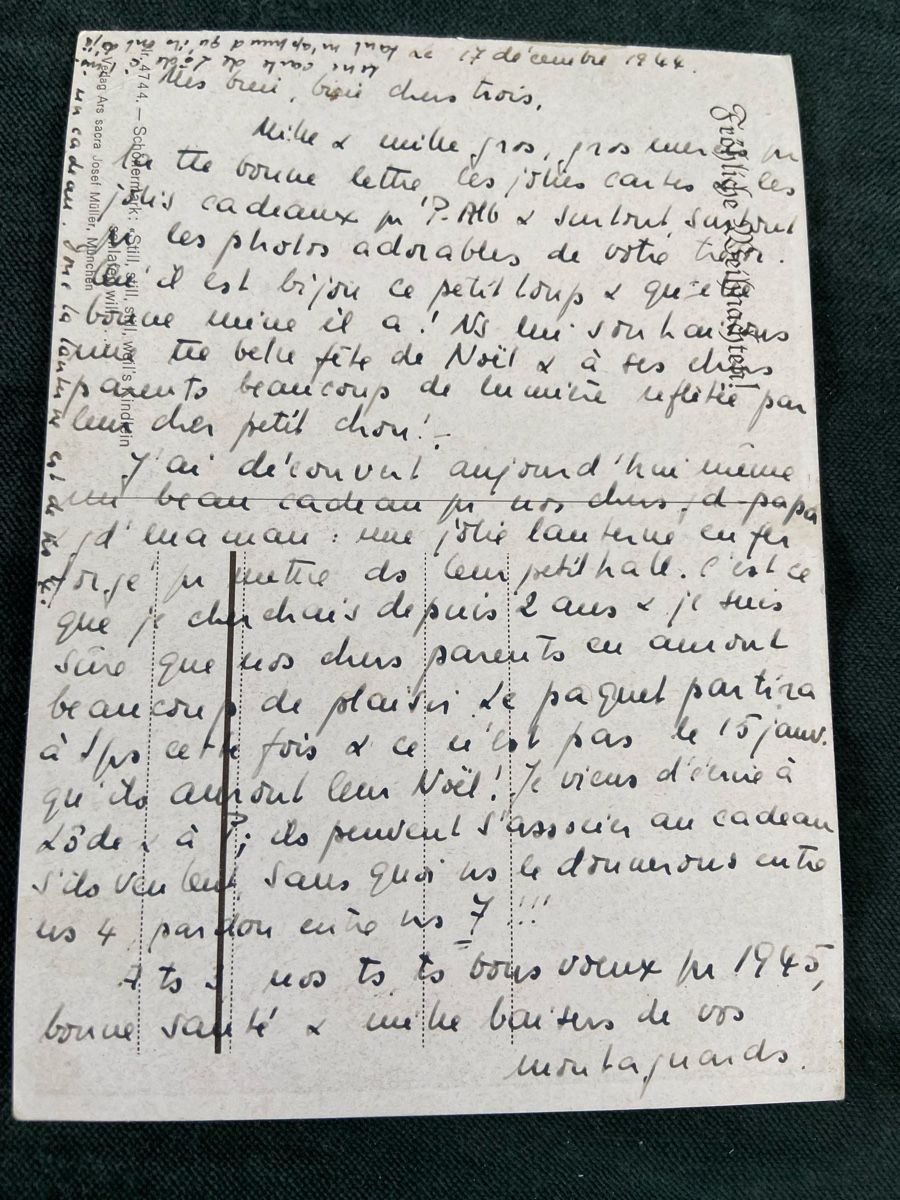 le 17 décembre 1944.
Mes bien, bien chers trois,
Mille & mille gros, gros merci pr
la tte bonne lettre, les jolies cartes & les
jolis cadeaux pr P. Alb & surtout, surtout
pr les photos adorables de votre
Qu'il est bijou ce petit loup & quelle
bonne mine il a! Ns lui souhaitons
une tte belle fête de Noël & à ses chers
parents beaucoup de lumière reflétée par
leur cher petit chou! –
J'ai découvert aujourd'hui même
un beau cadeau pr nos chers gd-papa
& gd'maman : une jolie lanterne en fer
forgé pr mettre ds leur petit hall. C'est ce
que je cherchais depuis 2 ans & je suis
sûre que nos chers parents en auront
beaucoup de plaisir. Le paquet partira
à tps cette fois & ce n'est pas le 15 janv.
qu'ils auront leur Noël! Je viens d'écrire à
Lôde & à P; ils peuvent s'associer au cadeau
s'ils veulent, sans quoi ns le donnerons entre
ns 4, pardon entre ns 7 !!!
A ts 3 nos ts, ts bons voeux pr 1945,
bonne santé & mille baisers de vos
montagnards.
une carte de Lôde
m'apprend qu'ils ont déjà
un cadeau. Donc la lanterne est de
Fröhliche Weihnachten!
Nr. 4744. — Schödermark: „Still, still, still, weil's Kindlein
schlafen will"
Verlag Ars sacra Josef Müller, München